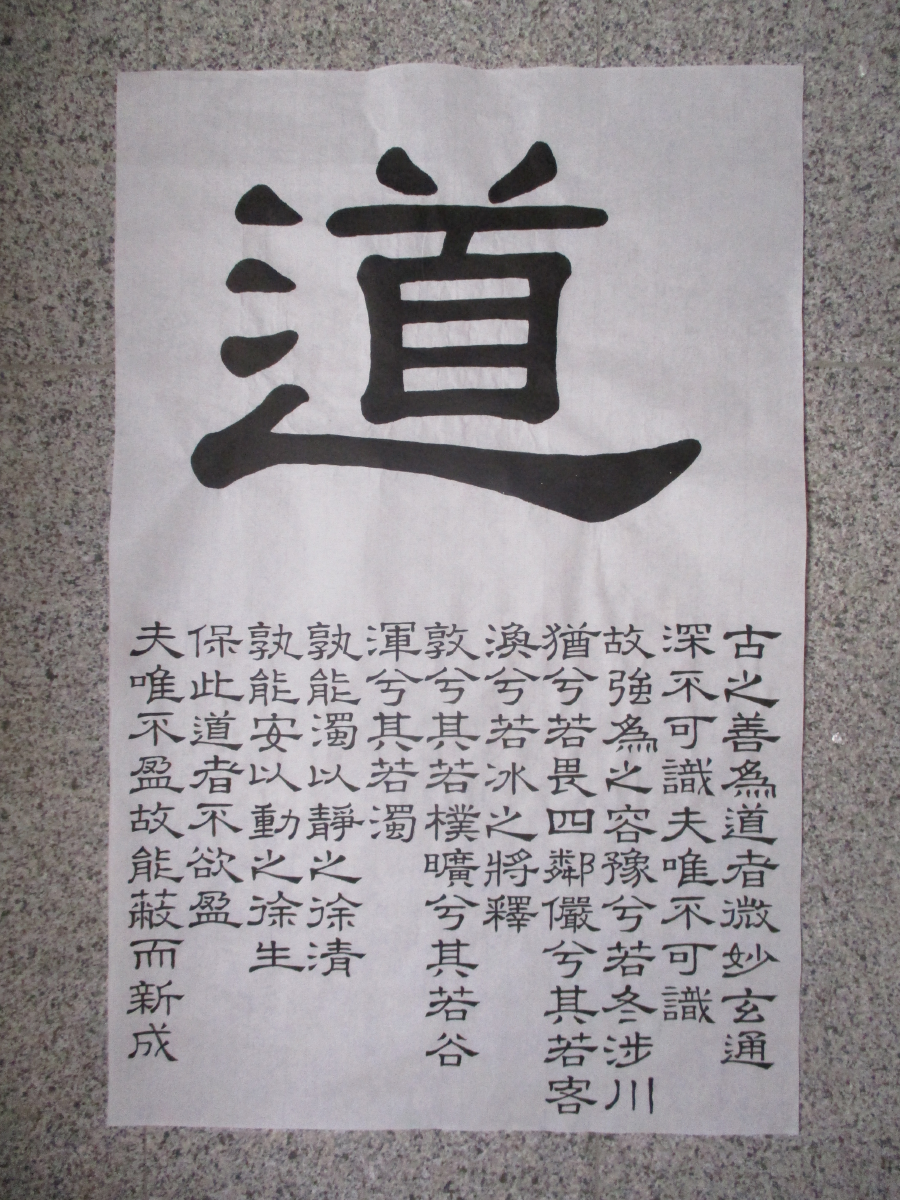 道
古之善為道者微妙玄通
深不可識夫唯不可識
故強為之容豫兮若冬涉川
猶兮若畏四鄰儼兮其若客
渙兮若冰之將釋
敦兮其若樸曠兮其若谷
渾兮其若濁
孰能濁以靜之徐清
孰能安以動之徐生
保此道者不欲盈
夫唯不盈故能蔽而新成